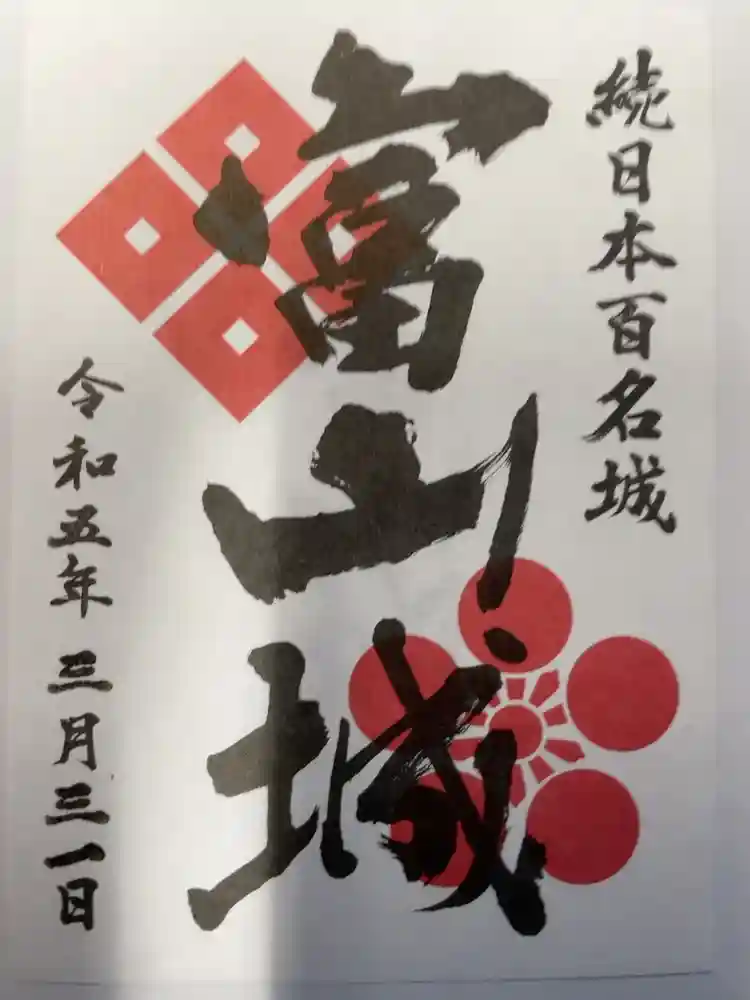 続日本百名城
富山城
令和五年 三月三一日